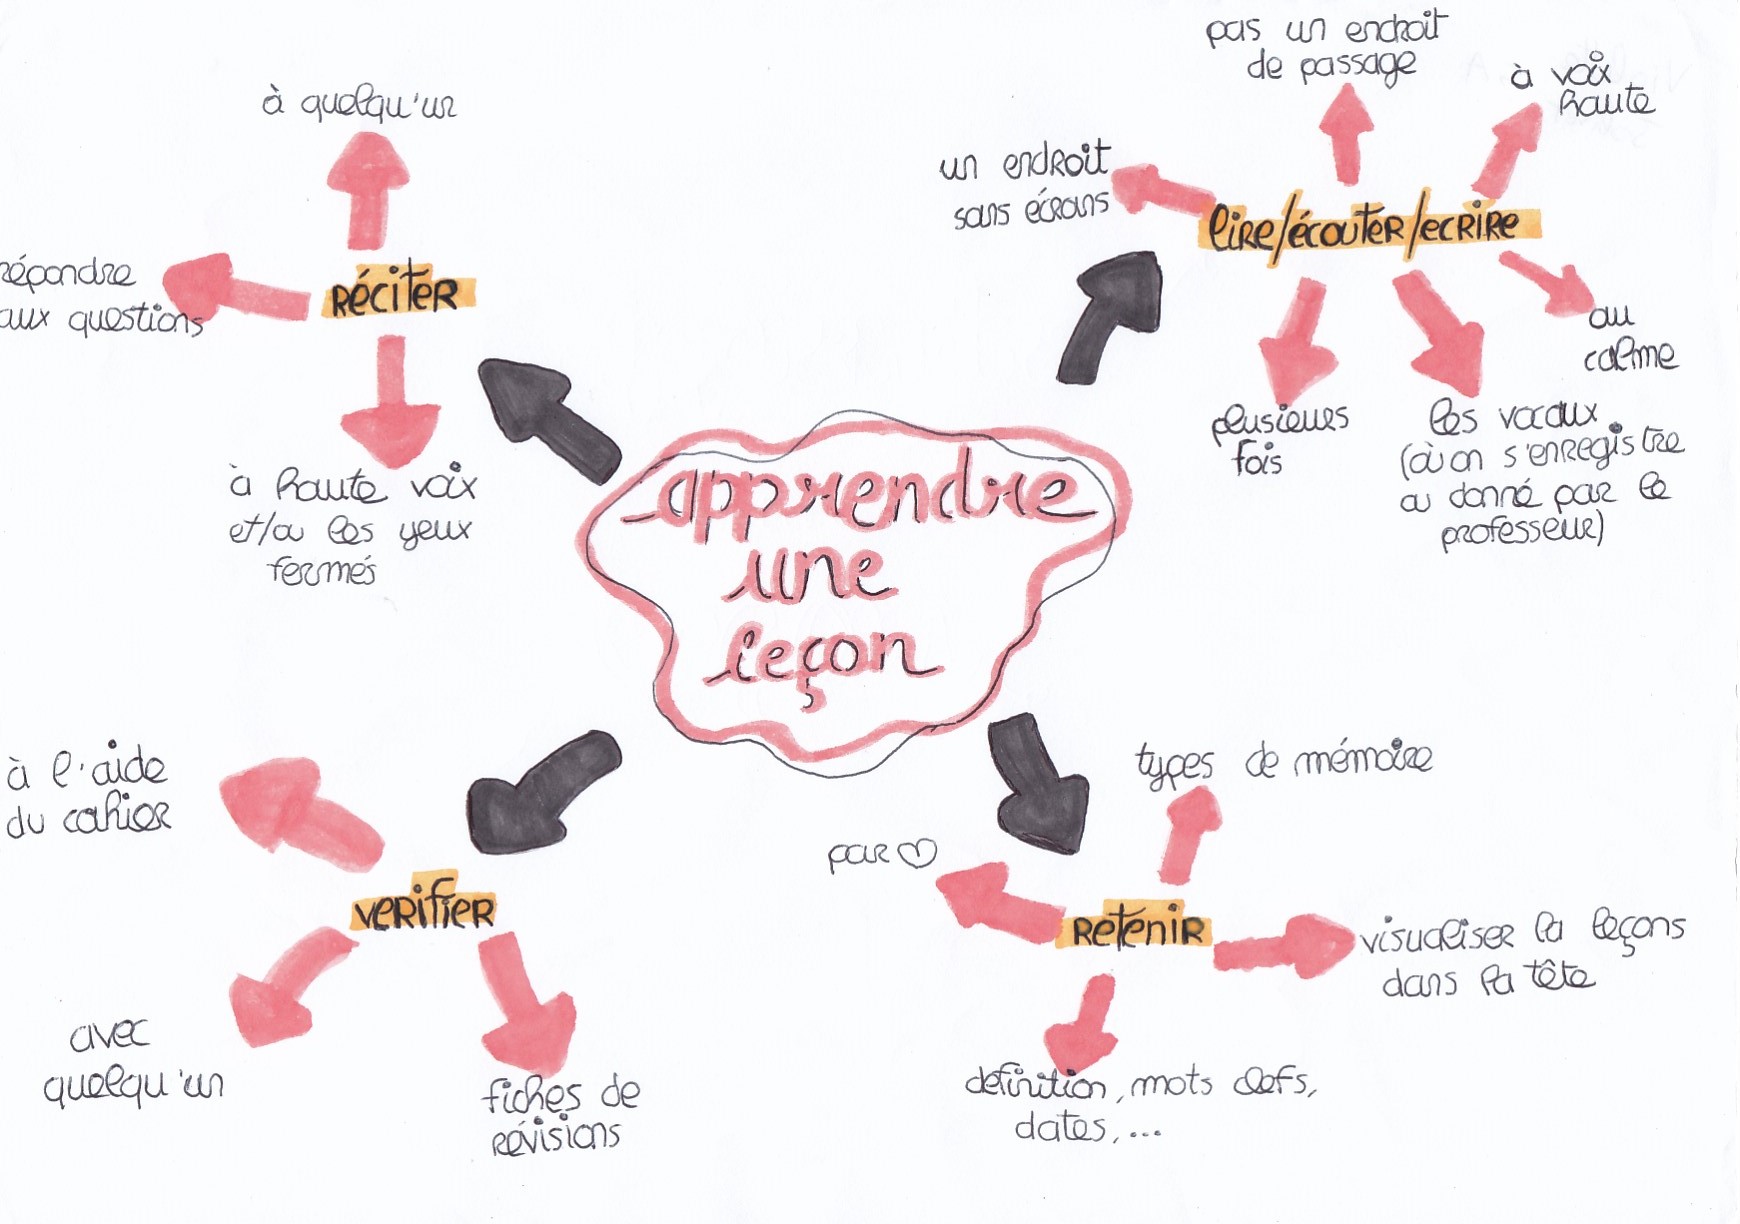 apprendre
une
leçon
RéciteR
à quelqu'un
répondre
aux questions
à haute voix
et/ou les yeux
fermés
liRe/écouteR/ecRiRe
un endroit
sans écrans
pas un endroit
de passage
à voix
haute
au
calme
les vocaux
(où on s'enregistre
ou donné par le
professeur)
plusieurs
fois
Retenir
types de mémoire
visualiser la leçons
dans la tête
définition, mots clefs,
dates, ...
par ♡
verifier
à l'aide
du cahier
avec
quelqu'un
fiches de
révisions